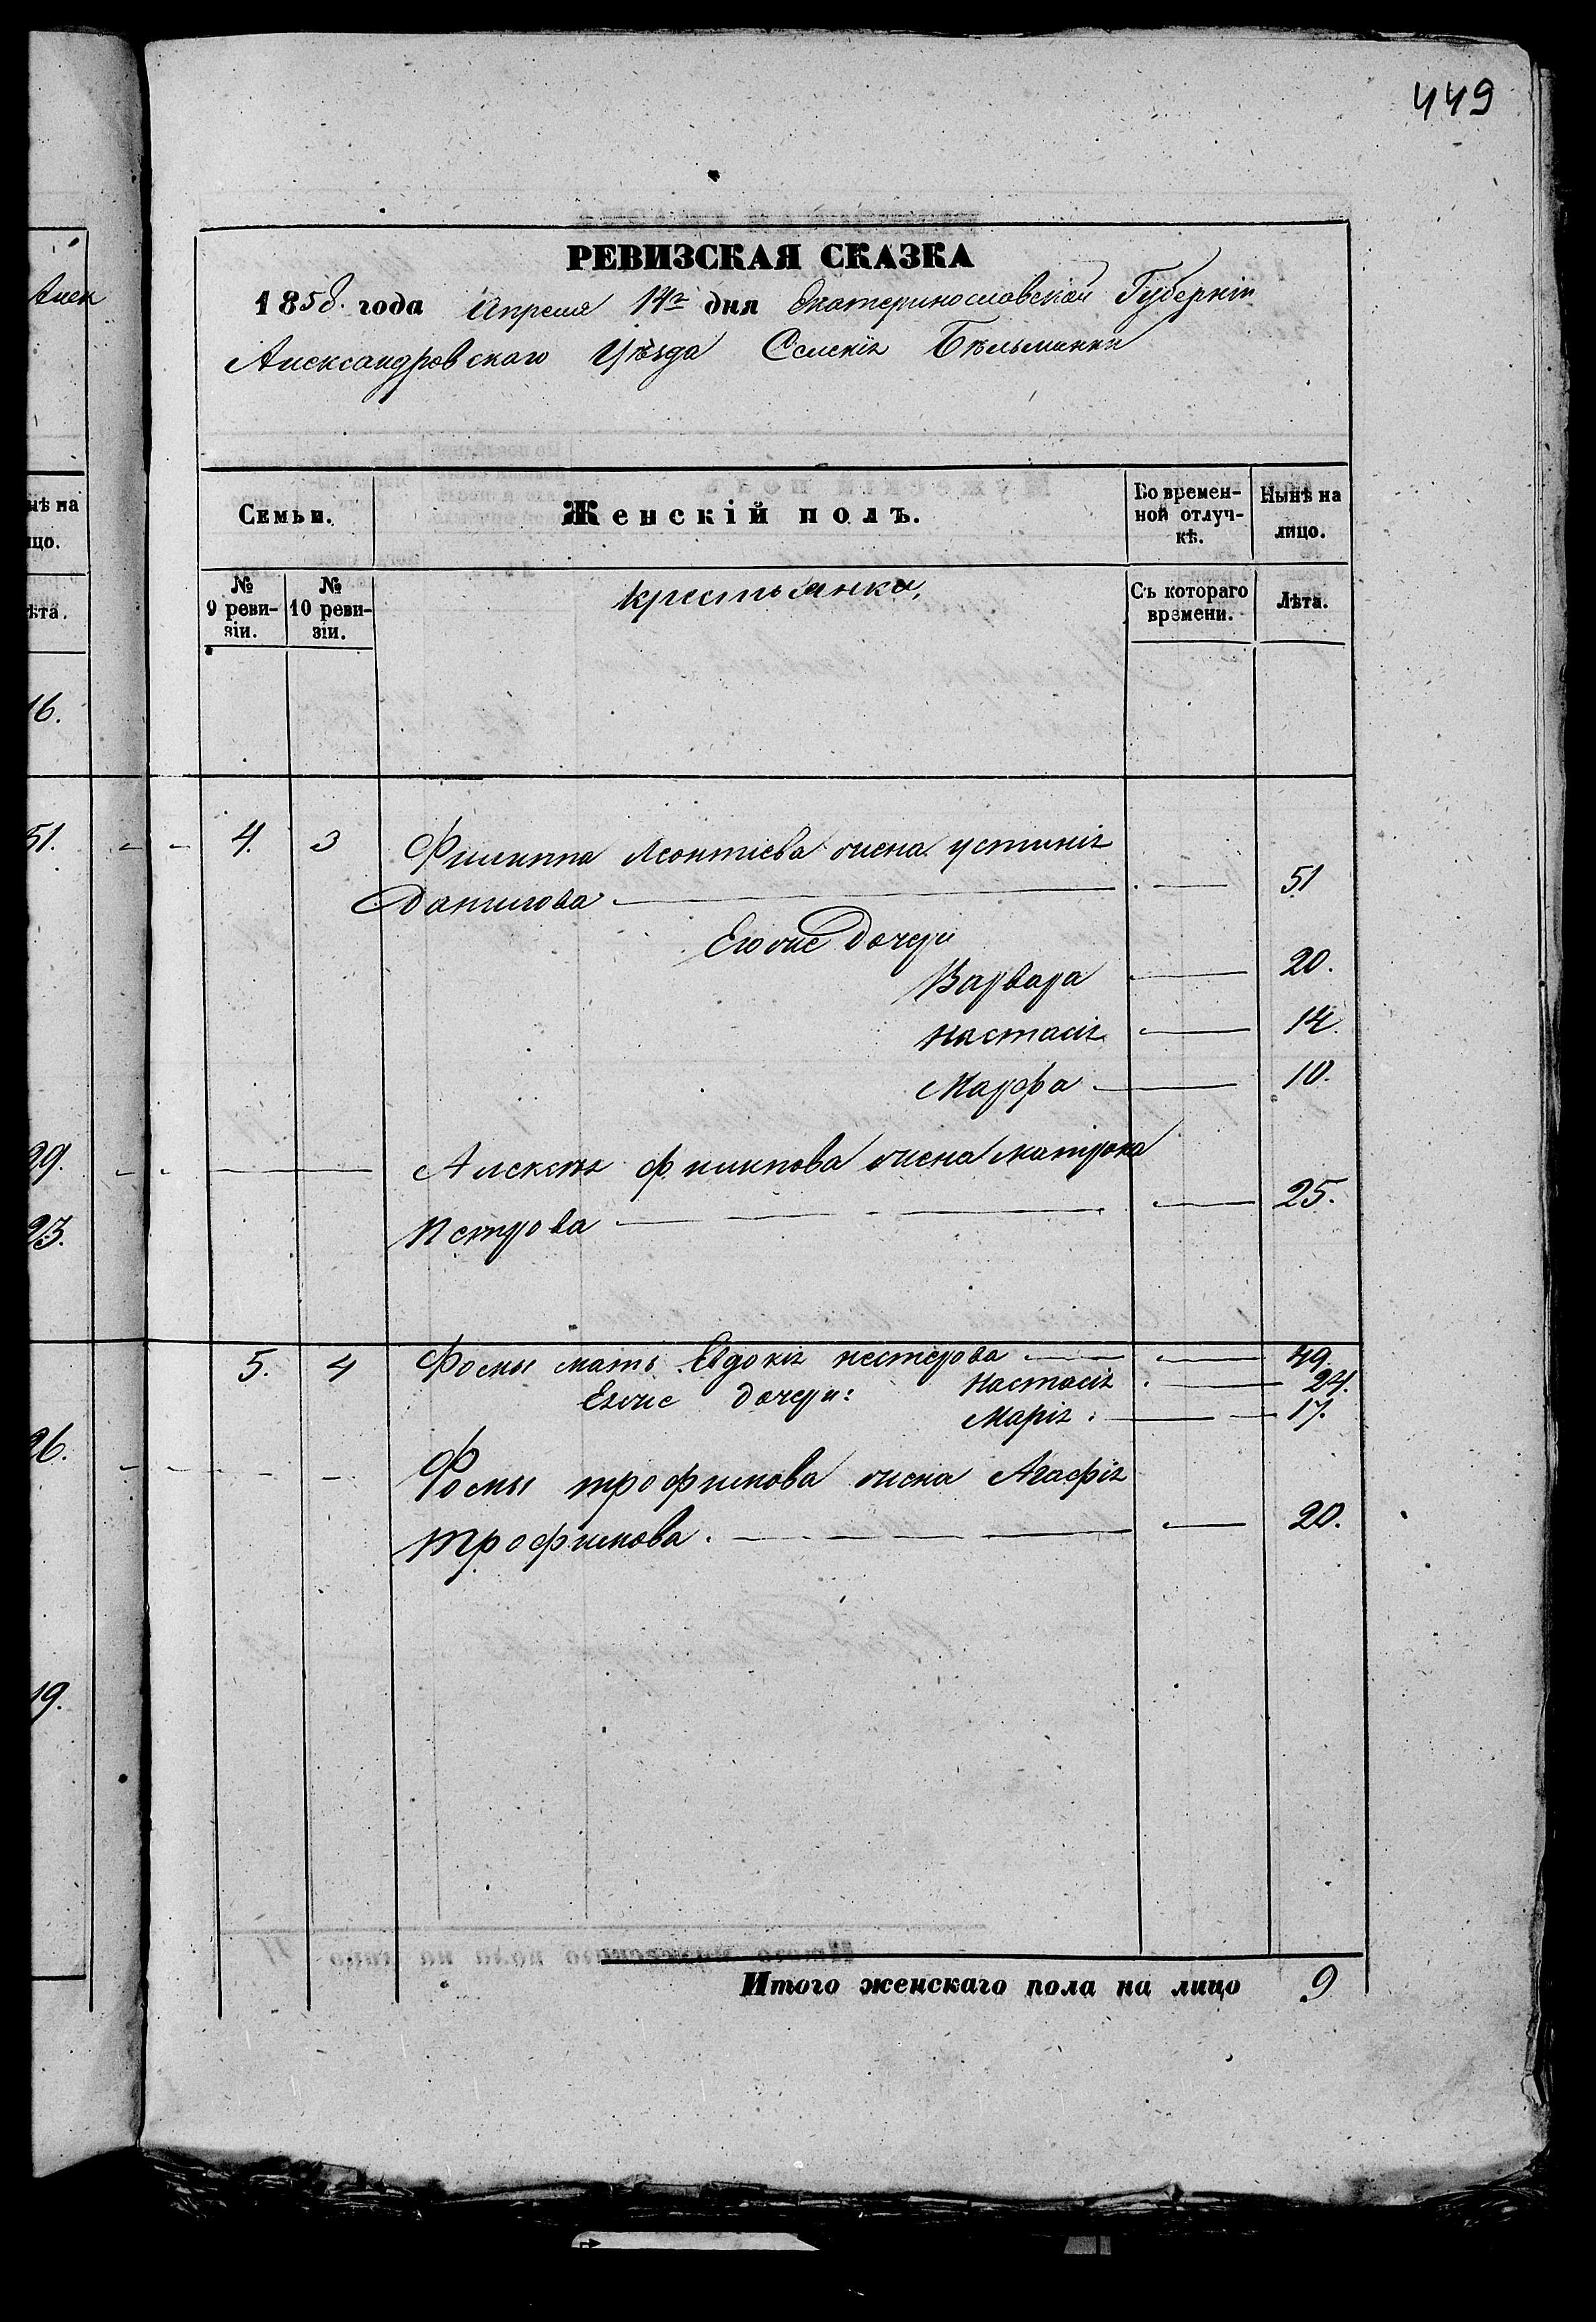 449
РЕВИЗСКАЯ СКАЗКА
1858. года Апреля 14го дня Екатеринославской Губерніи
Александровскаго Уѣзда Селенія Бѣльманки
Семьи.
Женскій полъ.
Во времен-
ной отлуч-
кѣ.
Нынѣ на
лицо.
№
9 реви-
зіи.
№
10 реви-
зіи.
крестьянка,
Съ котораго
времени.
Лѣта.
4. 3 Филиппа Леонтіева жена устинія
Данилова 51
Егоже Дочери
Варвара 20.
Настасія 14.
Марфа 10.
Алексѣя филипова жена матрона
Петрова 25.
5. 4 Фомы мать Евдокія нестерова 49.
Егоже дочери: Настасія 24.
Марія 17.
Фомы трофимова жена Агафія
трофимова. 20.
Итого женскаго пола на лицо 9
Алек
нѣ на
цо.
ѣта.
16.
51.
29.
23.
26.
19.